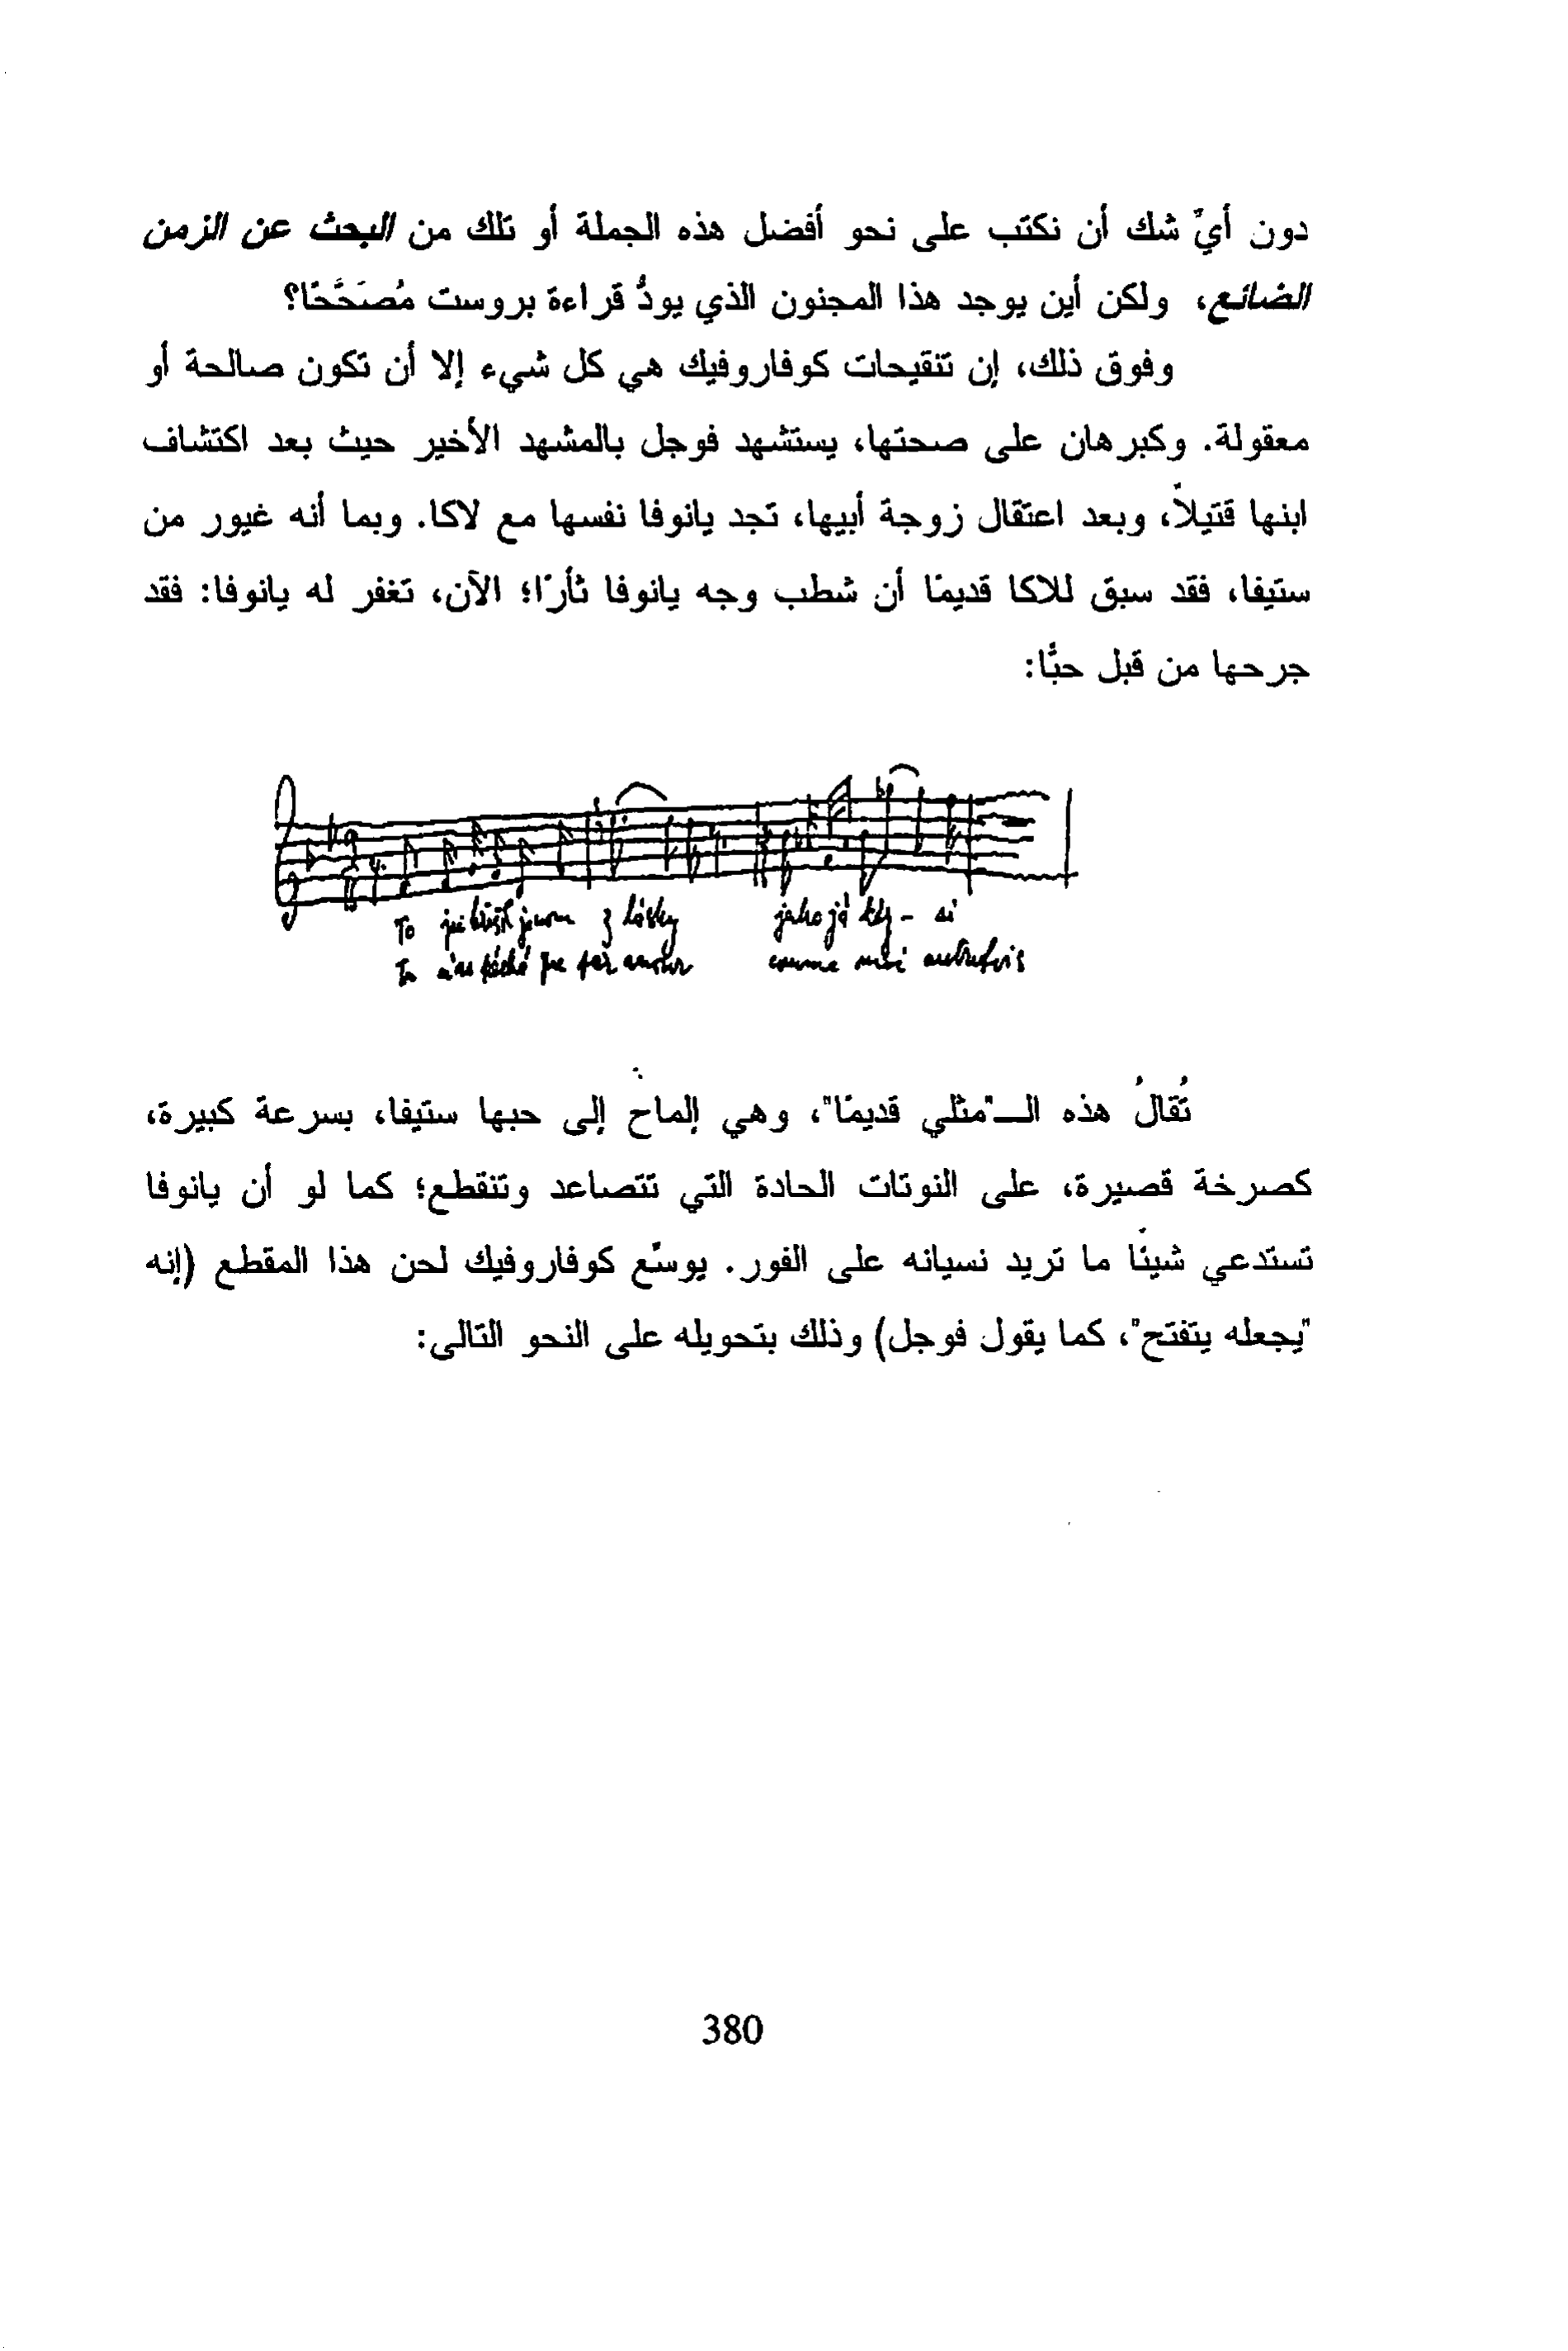 دون أيّ شك أن نكتب على نحو أفضل هذه الجملة أو تلك من البحث عن الزمن
الضائع، ولكن أين يوجد هذا المجنون الذي يودُّ قراءة بروست مُصَحَّحًا؟
وفوق ذلك، إن تنقيحات كوفاروفيك هي كل شيء إلا أن تكون صالحة أو
معقولة. وكبرهان على صحتها، يستشهد فوجل بالمشهد الأخير حيث بعد اكتشاف
ابنها قتيلاً، وبعد اعتقال زوجة أبيها، تجد يانوفا نفسها مع لاكا. وبما أنه غيور من
ستيفا، فقد سبق للاكا قديمًا أن شطب وجه يانوفا ثأرًا؛ الآن، تغفر له يانوفا: فقد
جرحها من قبل حبًّا:
To jsi hřešil jenom z lásky jako já kdy - si
Tu n'as péché que par amour comme moi autrefois
تُقالُ هذه الـ"مثلي قديمًا"، وهي إلماحٌ إلى حبها ستيفا، بسرعة كبيرة،
كصرخة قصيرة، على النوتات الحادة التي تتصاعد وتنقطع؛ كما لو أن يانوفا
تستدعي شيئًا ما تريد نسيانه على الفور. يوسّع كوفاروفيك لحن هذا المقطع (إنه
"يجعله يتفتح"، كما يقول فوجل) وذلك بتحويله على النحو التالي:
380